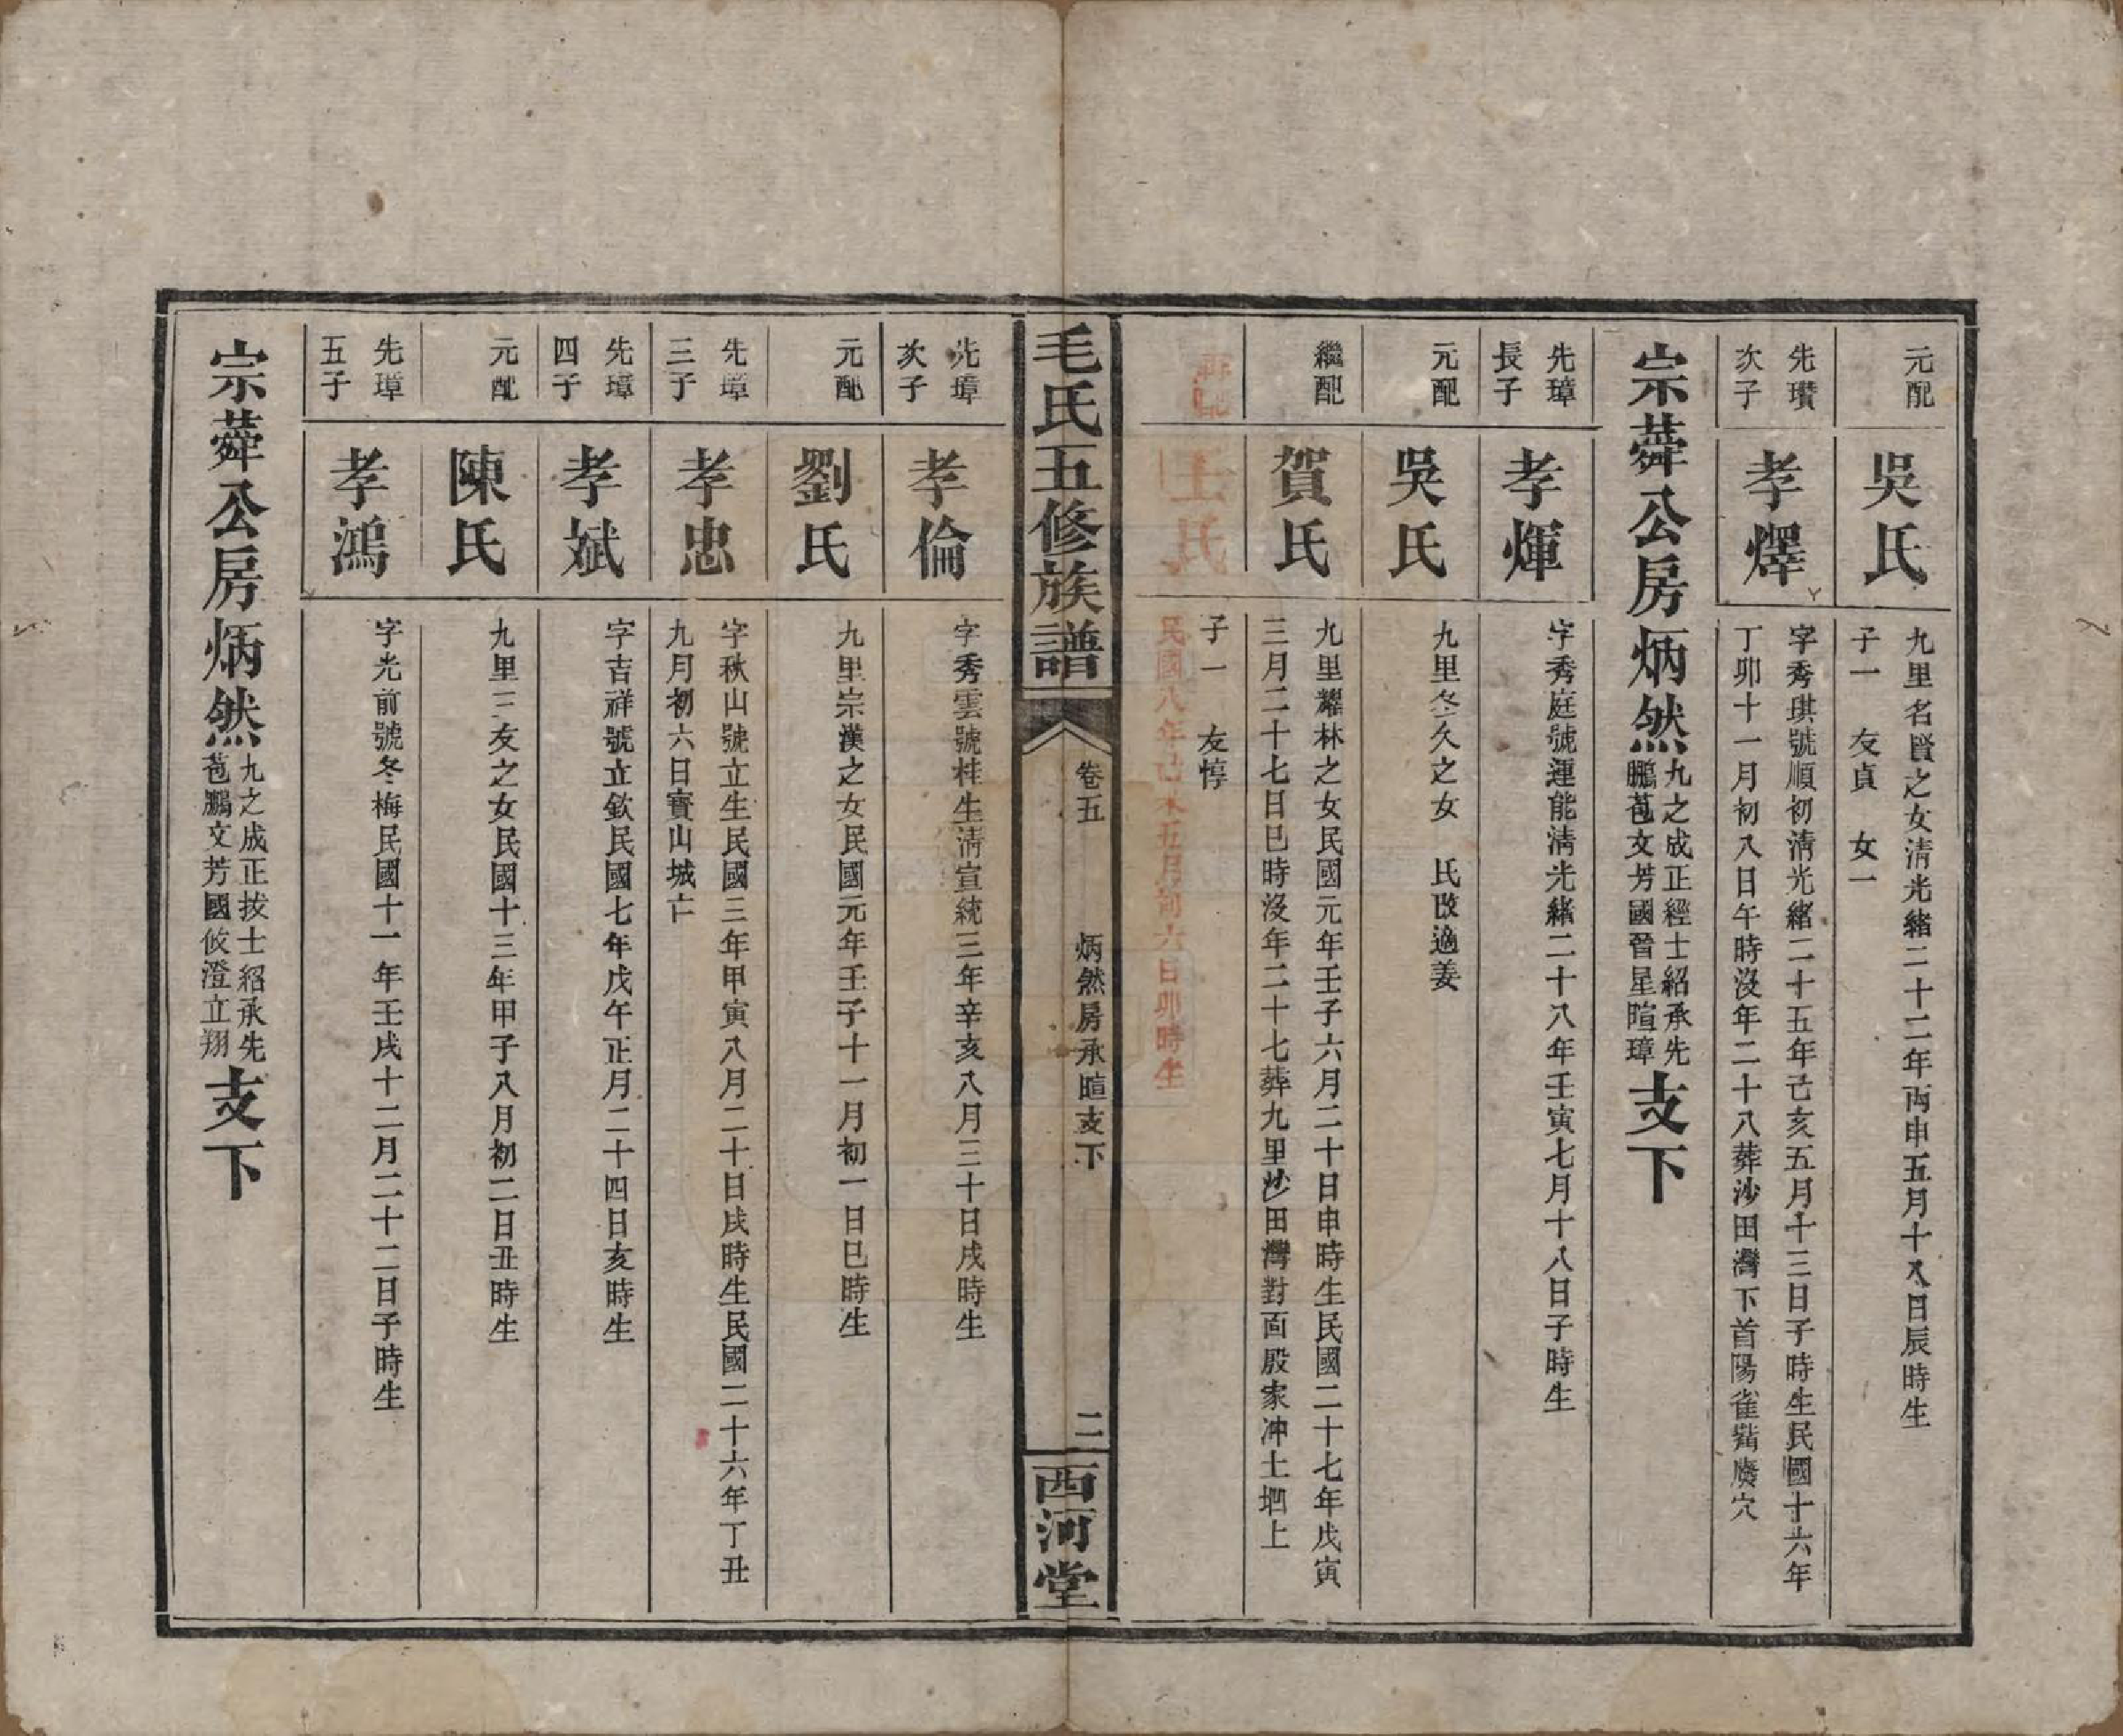 元配
吳氏
九里名賢之女清光緒二十二年丙申五月十八日辰時生
子一　友貞　女一
先瓚
次子
孝燡
字秀琪號順初清光緒二十五年己亥五月十三日子時生民國十六年
丁卯十一月初八日午時沒年二十八葬沙田灣下首陽雀嘴廢穴
宗蕣公房炳然
九之成正經士紹承先
鵬苞文芳國晉星暄璋
支下
先璋
長子
孝煇
字秀庭號運能清光緒二十八年壬寅七月十八日子時生
元配
吳氏
九里冬久之女　氏改適姜
繼配
賀氏
九里耀林之女民國元年壬子六月二十日申時生民國二十七年戊寅
三月二十七日巳時沒年二十七葬九里沙田灣對面殷家沖土堌上
子一　友惇
再配
王氏
民國八年己未五月初六日卯時生
毛氏五修族譜
卷五
炳然房承暄支下
二
西河堂
先璋
次子
孝倫
字秀雲號桂生清宣統三年辛亥八月三十日戌時生
元配
劉氏
九里宗漢之女民國元年壬子十一月初一日巳時生
先璋
三子
孝忠
字秋山號立生民國三年甲寅八月二十日戌時生民國二十六年丁丑
九月初六日寶山城亡
先璋
四子
孝斌
字吉祥號立欽民國七年戊午正月二十四日亥時生
元配
陳氏
九里三友之女民國十三年甲子八月初二日丑時生
先璋
五子
孝鴻
字光前號冬梅民國十一年壬戌十二月二十二日子時生
宗蕣公房炳然
九之成正拔士紹承先
苞鵬文芳國攸澄立翔
支下